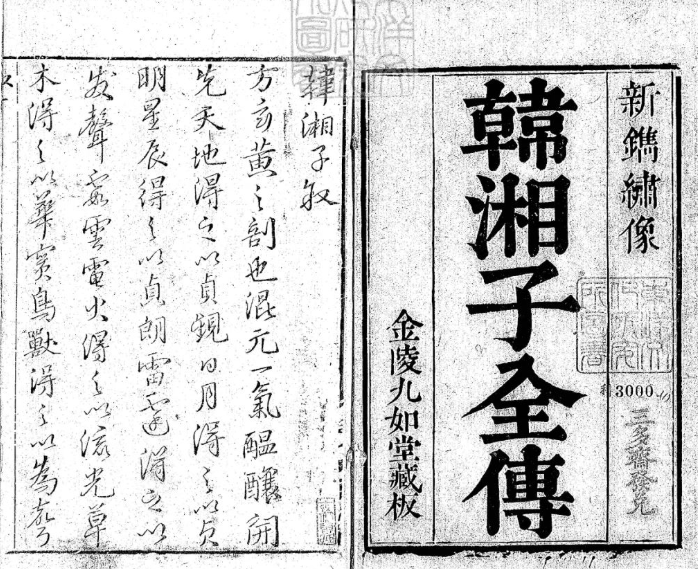 新鐫繡像
韓湘子全傳
金陵九如堂藏板
3000
三多齋發兌
韓湘子敘
方玄黃之剖也混元一氣醞釀開
先天地得之以貞觀日月得之以貞
明星辰得之以貞朗雷霆得之以
發聲雲電火得之以流光草
木得之以華實鳥獸得之以為